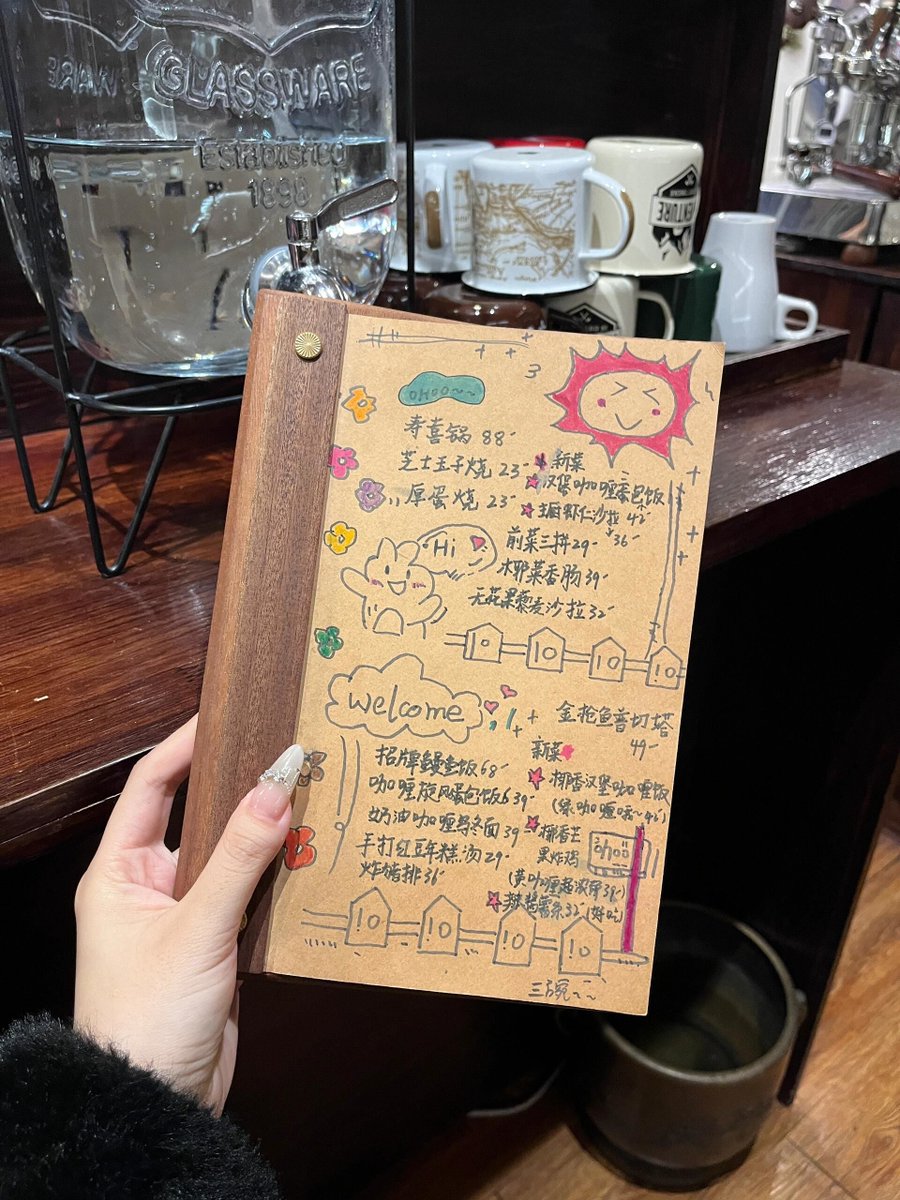 GLASSWARE
Established
1898
VENTURE
OHOO~~
3
寿喜锅 88
芝士玉子烧 23
厚蛋烧 23
新菜
汉堡咖喱蛋包饭
虾仁沙拉 42
36
前菜三拼 29
椰菜香肠 39
无花果藜麦沙拉 32
Hi
10
10
10
10
welcome
金抢鱼普切塔
49
招牌鳗鱼饭 68
咖喱旋风蛋包饭 39
奶油咖喱乌冬面 39
手打红豆年糕汤 29
炸猪排 36
新菜
椰香汉堡咖喱饭
椰香芝
果炸鸡
ohoo
辣酱薯条 32 (好吃)
10
10
10
10
三碗~~